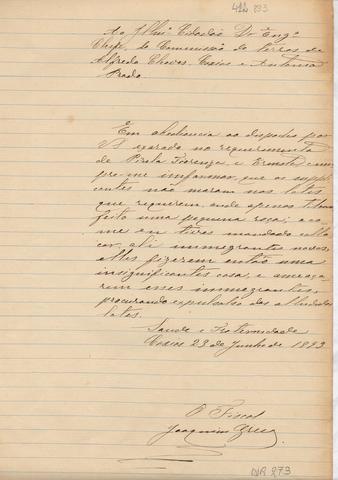 Ao Illmo Cidadão Dr Engo
Chefe da Commissão de terras de
Alfredo Chaves, Caxias e Antonio
Prado.
Em obediencia ao despacho por
VS exarado no requerimento
de Fiorenza e Ernesto, cum
pre-me informar, que os suppli
cantes não moram nos lotes
que requerem, onde apenas tem
feito uma pequena roça; e co
mo eu tives mandado collo
car, ali immigrantes novos,
elles fizeram então uma
insignificante casa, e ameaça
ram esses immigrantes,
procurando expulsal-os dos alludidos
lotes.
Saude e Fraternidade
Caxias 23 de Junho de 1893
O Fiscal
Joaquim
273